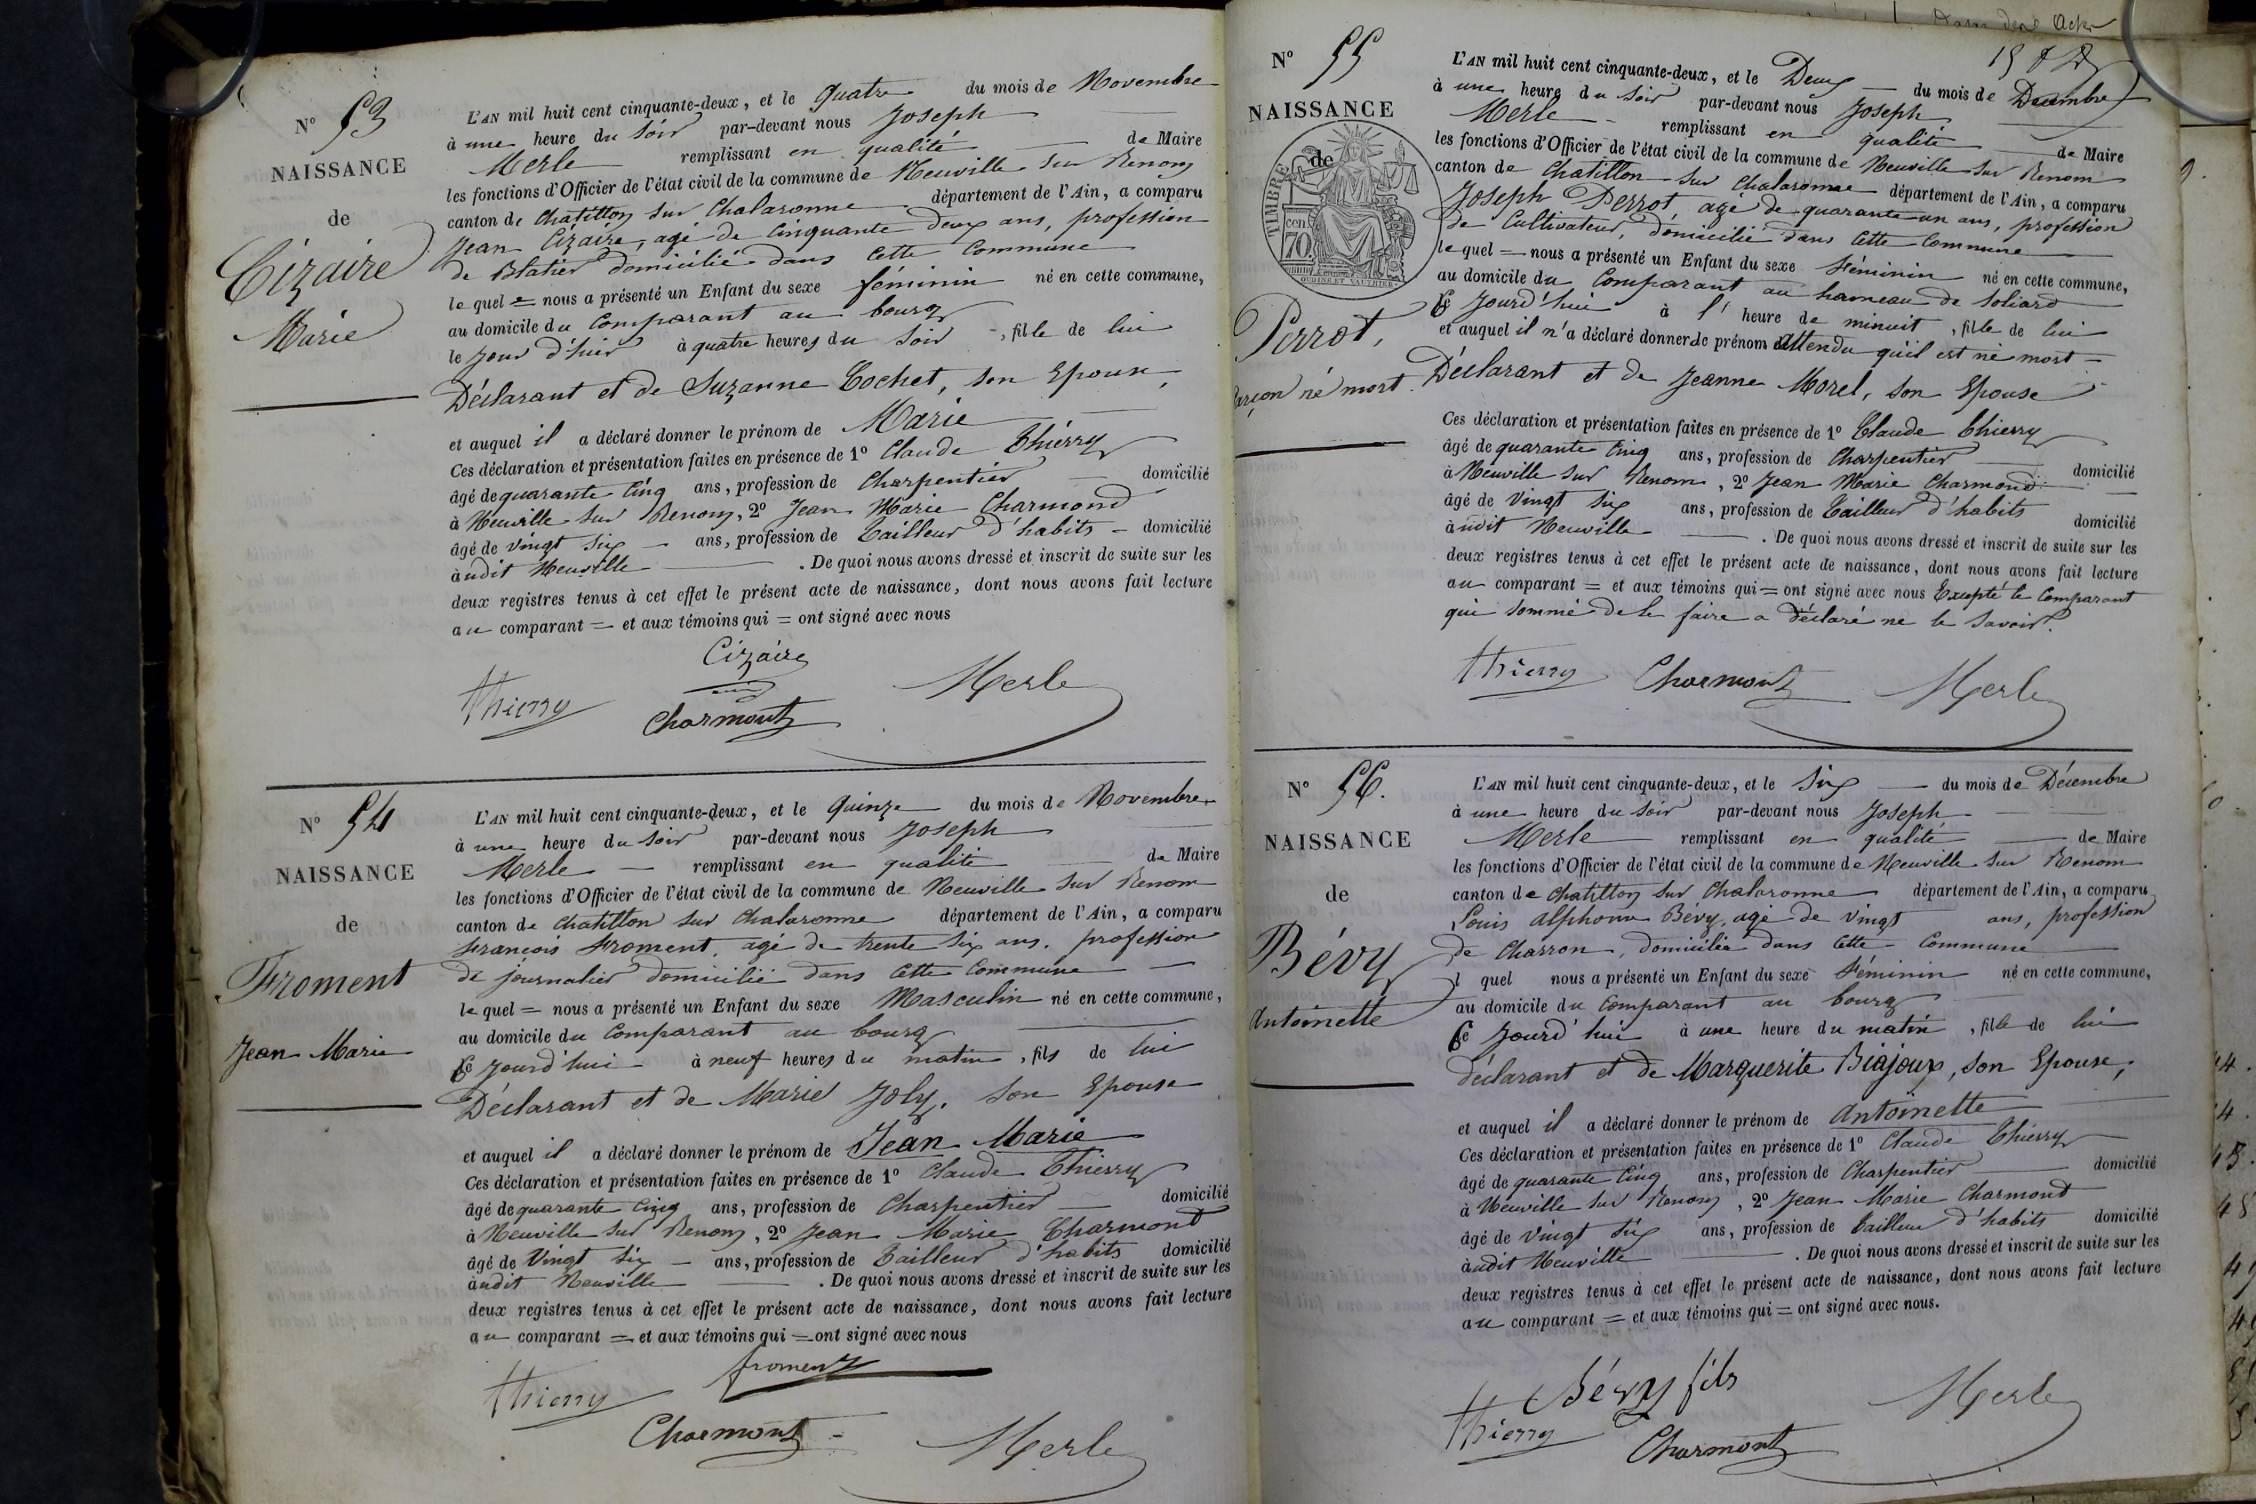 N° 53
NAISSANCE
de
Cizaire
Marie
L'AN mil huit cent cinquante-deux, et le quatre du mois de Novembre
à une heure du soir par-devant nous Joseph
Merle remplissant en qualité de Maire
les fonctions d'Officier de l'état civil de la commune de Neuville sur Renom
canton de Chatillon sur Chalaronne département de l'Ain, a comparu
Jean Cizaire, agé de Cinquante deux ans, profession
de Blatier domicilié dans cette Commune
le quel = nous a présenté un Enfant du sexe féminin né en cette commune,
au domicile du Comparant au bourg
le jour d'hier à quatre heures du soir, fille de lui
Déclarant et de Suzanne Cochet, son Epouse,
et auquel il a déclaré donner le prénom de Marie
Ces déclaration et présentation faites en présence de 1° Claude Thierry
âgé de quarante Cinq ans, profession de Charpentier domicilié
à Neuville sur Renom, 2° Jean Marie Charmond
âgé de vingt six ans, profession de Tailleur d'habits domicilié
àudit Neuville. De quoi nous avons dressé et inscrit de suite sur les
deux registres tenus à cet effet le présent acte de naissance, dont nous avons fait lecture
au comparant = et aux témoins qui = ont signé avec nous
Cizaire
Thierry Charmont Merle
N° 54
NAISSANCE
de
Froment
Jean Marie
L'AN mil huit cent cinquante-deux, et le Quinze du mois de Novembre
à une heure du soir par-devant nous Joseph
Merle remplissant en qualité de Maire
les fonctions d'Officier de l'état civil de la commune de Neuville sur Renom
canton de Chatillon sur Chalaronne département de l'Ain, a comparu
François Froment, agé de trente six ans, profession
de journalier domicilié dans cette Commune
le quel = nous a présenté un Enfant du sexe Masculin né en cette commune,
au domicile du Comparant au bourg
Ce jourd'hui à neuf heures du matin, fils de lui
Déclarant et de Marie Joly, son Epouse
et auquel il a déclaré donner le prénom de Jean Marie
Ces déclaration et présentation faites en présence de 1° Claude Thierry
âgé de quarante Cinq ans, profession de Charpentier domicilié
à Neuville sur Renom, 2° Jean Marie Charmont
âgé de Vingt six ans, profession de Tailleur d'habits domicilié
àudit Neuville. De quoi nous avons dressé et inscrit de suite sur les
deux registres tenus à cet effet le présent acte de naissance, dont nous avons fait lecture
au comparant = et aux témoins qui = ont signé avec nous
froment
Thierry
Charmont Merle
N° 55
NAISSANCE
de
TIMBRE
70 cen
OUDINÉ ET VAUTHIER
Perrot,
garçon né mort
L'AN mil huit cent cinquante-deux, et le Deux du mois de Décembre
à une heure du soir par-devant nous Joseph
Merle remplissant en qualité de Maire
les fonctions d'Officier de l'état civil de la commune de Neuville sur Renom
canton de Chatillon sur Chalaronne département de l'Ain, a comparu
Joseph Perrot agé de quarante un ans, profession
de Cultivateur, domicilié dans cette Commune
le quel = nous a présenté un Enfant du sexe Féminin né en cette commune,
au domicile du Comparant au hameau de Soliard
Ce jourd'hui à l'heure de minuit, fille de lui
et auquel il n'a déclaré donner de prénom attendu qu'il est né mort
Déclarant et de Jeanne Morel, son Epouse
Ces déclaration et présentation faites en présence de 1° Claude Thierry
âgé de quarante Cinq ans, profession de Charpentier domicilié
à Neuville sur Renom, 2° Jean Marie Charmond
âgé de Vingt Six ans, profession de Tailleur d'habits domicilié
àudit Neuville. De quoi nous avons dressé et inscrit de suite sur les
deux registres tenus à cet effet le présent acte de naissance, dont nous avons fait lecture
au comparant = et aux témoins qui = ont signé avec nous Excepté le Comparant
qui sommé de le faire a déclaré ne le savoir.
Thierry Charmont Merle
N° 56.
NAISSANCE
de
Bévy
Antoinette
L'AN mil huit cent cinquante-deux, et le Six du mois de Décembre
à une heure du soir par-devant nous Joseph
Merle remplissant en qualité de Maire
les fonctions d'Officier de l'état civil de la commune de Neuville sur Renom
canton de Chatillon sur Chalaronne département de l'Ain, a comparu
Louis Alphonse Bévy, agé de vingt ans, profession
de Charron, domicilié dans cette Commune
l quel nous a présenté un Enfant du sexe Féminin né en cette commune,
au domicile du Comparant au bourg
Ce jourd'hui à une heure du matin, fille de lui
déclarant et de Marguerite Biajoux, son Epouse,
et auquel il a déclaré donner le prénom de Antoinette
Ces déclaration et présentation faites en présence de 1° Claude Thierry
âgé de quarante Cinq ans, profession de Charpentier domicilié
à Neuville sur Renom, 2° Jean Marie Charmont
âgé de Vingt Six ans, profession de Tailleur d'habits domicilié
àudit Neuville. De quoi nous avons dressé et inscrit de suite sur les
deux registres tenus à cet effet le présent acte de naissance, dont nous avons fait lecture
au comparant = et aux témoins qui = ont signé avec nous.
Bévy fils
Thierry Charmont Merle